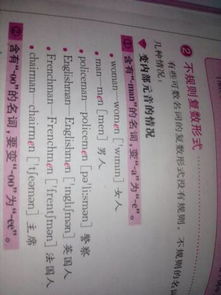 ② 不规则复数形式
有些可数名词的复数形式没有规则，不规则的名词
几种情况：
变内部元音的情况
① 含有"man"的名词，要变"-a"为"-e"。
• woman-women ['wɪmɪn] 女人
• man-men [men] 男人
• policeman-policemen [pə'li:smən] 警察
• Englishman-Englishmen ['ɪŋglɪʃmən] 英国人
• Frenchman-Frenchmen ['frentʃmən] 法国人
• chairman-chairmen ['tʃeəmən] 主席
② 含有"-oo"的名词，要变"-oo"为"-ee"。